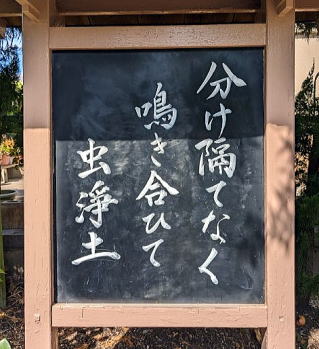 分け隔てなく
鳴き合ひて
虫浄土